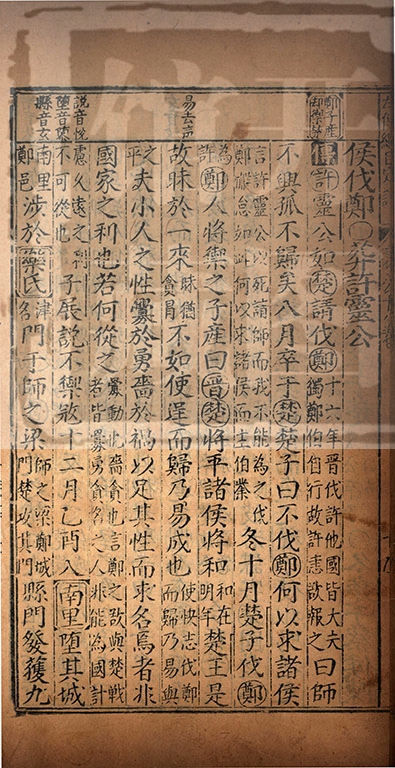 鄭子產
却禦楚
侯伐鄭〇葬許靈公
傳許靈公如楚請伐鄭十六年晋伐許他國皆大夫獨鄭伯自行故許恚欲報之曰師
不興孤不歸矣八月卒于楚楚子曰不伐鄭何以求諸侯
言許靈公以死請師而我不能為之伐鄭如此何以求諸侯而主伯業冬十月楚子伐鄭
為許鄭人將禦之子產曰晋楚將平諸侯將和和在明年楚王是
易去声
故昧於一來昧猶貪冒不如使逞而歸乃易成也使快志伐鄭而歸乃易與
之平夫小人之性釁於勇嗇於禍以足其性而求名焉者非
國家之利也若何從之釁動也嗇貪也言鄭之欲與楚戰者皆釁勇貪名之人非能為國計
說音悅
墮音隳
縣音玄
慮久遠之利不可從也子展說不禦寇十二月乙酉入南里墮其城
南里鄭邑涉於樂氏津名門于師之梁師之梁鄭城門楚攻其門縣門發獲九